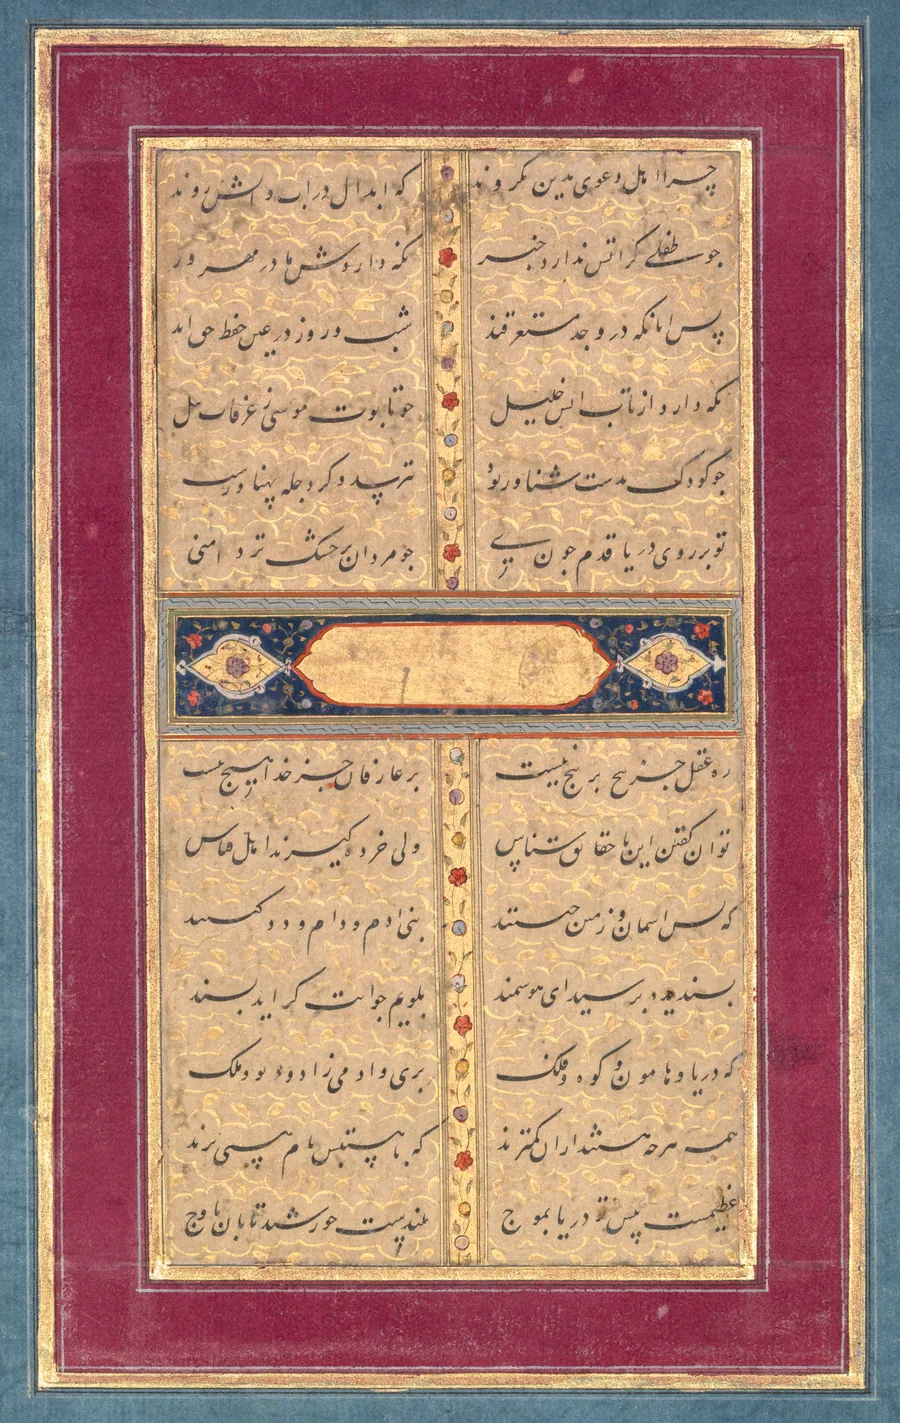 چرا اهل دعوی بدین نکروند که ابدال در اب و اتش روند
جو طفلی کز اتش ندارد خبر نکه داردش مادر مهرور
پس انانکه در وجد مستغرقند شب و روز در عین حفظ حق اند
نکه دارد از تاب اتش خلیل جو تابوت موسی ز غرقاب نیل
جو کودک بدست شناور بود نترسد وکر دجله پهناورست
تو بر روی دریا قدم جون زنی جو مردان که بر خشک تردامنی
ره عقل جز پیج بر پیج نیست بر عارفان جز خدا هیج نیست
توان کفتن این با حقایق شناس ولی خرده کیرند اهل قیاس
که پس اسمان و زمین جیستند بنی ادم و دام و دد کیستند
پسندیده پرسیدی ای هوشمند بکویم جوابت کر اید پسند
که دریا و هامون و کوه و فلک پری و ادمی زاد و دیو و ملک
همه هرجه هستند ازان کمترند که با هستیش نام هستی برند
عظیمست پیش تو دریا بموج بلندست خورشید تابان باوج